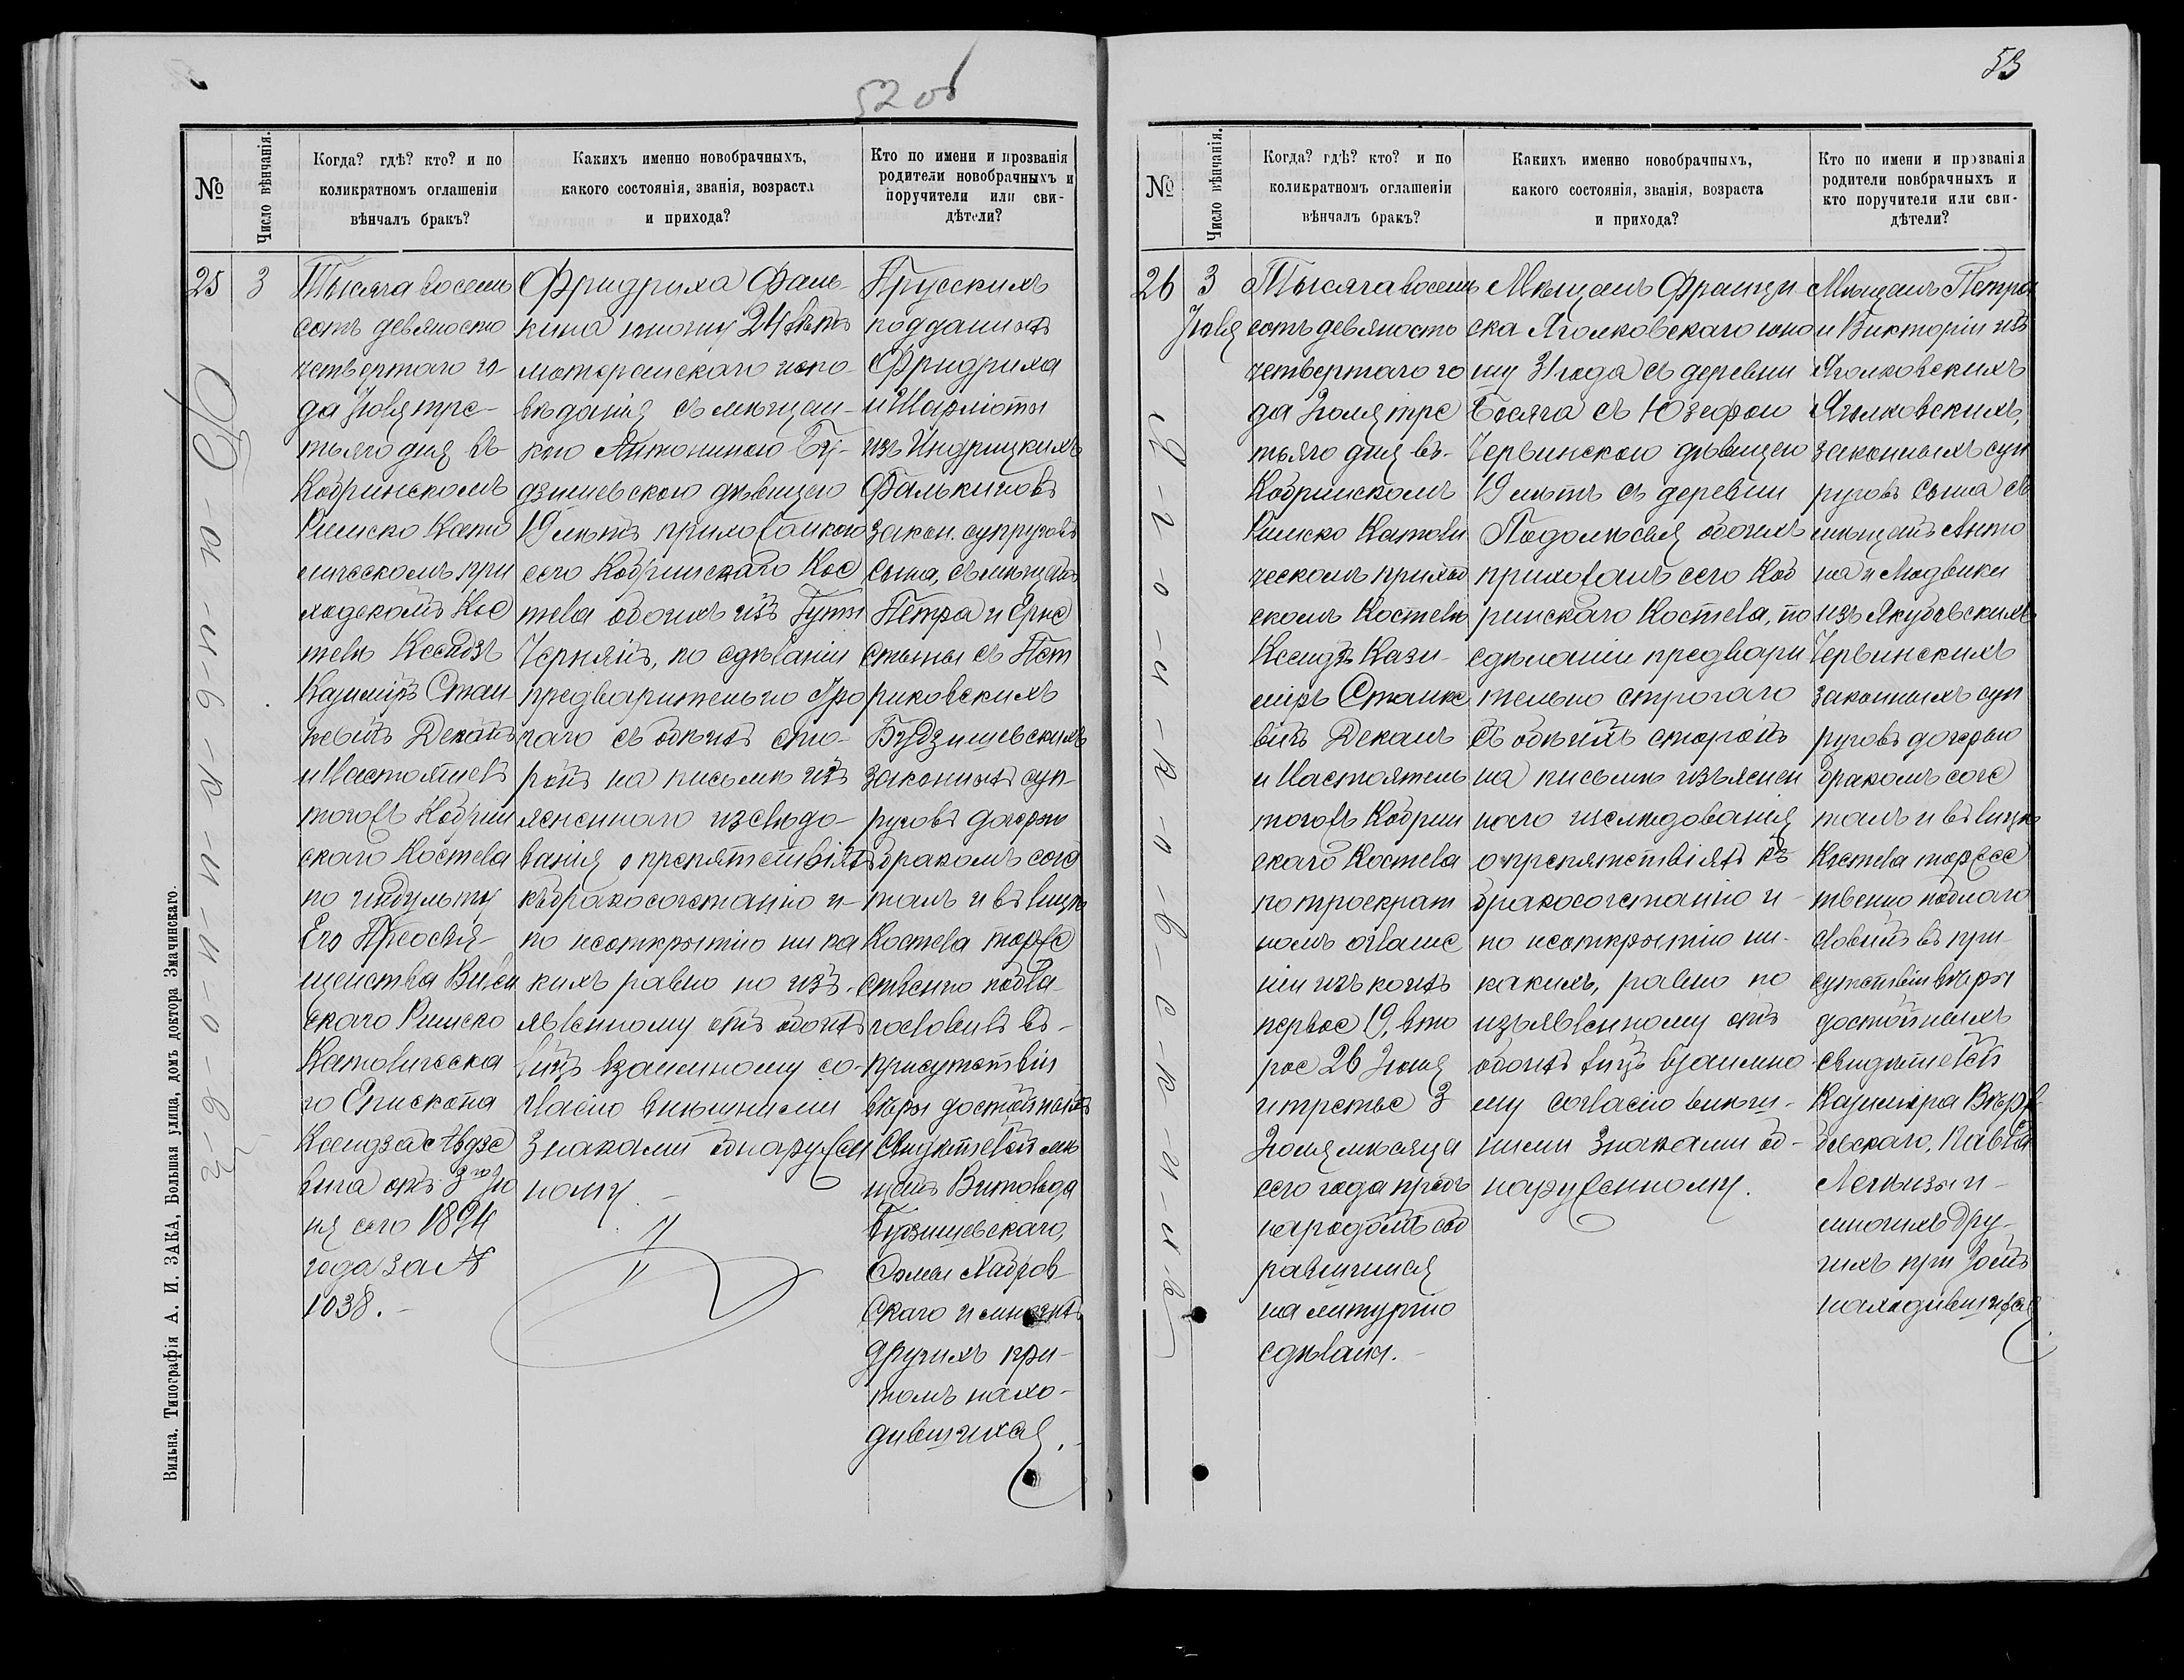 52 об
№
Число вѣнчанія.
Когда? гдѣ? кто? и по
коликратномъ оглашеніи
вѣнчалъ бракъ?
Какихъ именно новобрачныхъ,
какого состоянія, званія, возраста
и прихода?
Кто по имени и прозванія
родители новобрачныхъ и
поручители или сви-
дѣтели?
25
3
Тысяча восемь
сотъ девяносто
четвертаго го-
да Іюля тре-
тьяго дня въ
Кобринскомъ
Римско Като
лическомъ при
ходскомъ Кос
телѣ Ксендзъ
Казиміръ Стан
кевичъ Деканъ
и Настоятель
тогожъ Кобрин
скаго Костела
по индульту
Его Преосвя-
щенства Вилен
скаго Римско
Католическа
го Епископа
Ксендза Авдзе
вича отъ 3го Ію
ня сего 1894
года за №
1038.-
Фридриха Фаль-
кина юношу 24 лѣтъ
лютеранскаго испо-
вѣданія съ мѣщан-
кою Антониною Бу-
дзишевскою дѣвицею
19 лѣтъ прихожанкою
сего Кобринскаго Кос
тела обоихъ изъ Гуты
Чернянъ, по сдѣланіи
предварительно стро
гаго съ обѣихъ сто-
ронъ на письмѣ изъ
ясненнаго изслѣдо-
ванія о препятствіяхъ
къ бракосочетанію и-
по неоткрытію ни ка
кихъ равно по изъ-
явленному отъ обоихъ
лицъ взаимному со-
гласію внѣшними
знаками обнаружен
ному.
Прусскихъ
подданыхъ
Фридриха
и Шарлоты
изъ Индрицкихъ
Фалькиновъ
закон. супруговъ
сына, съ мѣщанъ
Петра и Ерне
стыны съ Пет
риковскихъ
Будзишевскихъ
законныхъ суп-
руговъ дочерью
бракомъ соче
талъ и въ лицѣ
Костела торже
ственно побла-
гословилъ въ-
присутствіи
вѣры достойныхъ
Свидѣтелей мѣ
щанъ Витольда
Будзишевскаго,
скаго и многихъ
другихъ при-
томъ нахо-
дившихся.
Вильна. Типографія А. И. ЗАКА, Большая улица, домъ доктора Змачинскаго.
53
№
Число вѣнчанія.
Когда? гдѣ? кто? и по
коликратномъ оглашеніи
вѣнчалъ бракъ?
Какихъ именно новобрачныхъ,
какого состоянія, званія, возраста
и прихода?
Кто по имени и прозванія
родители новбрачныхъ и
кто поручители или сви-
дѣтели?
26
3
Іюля
Тысяча восемь
сотъ девяность
четвертаго го
да Іюля тре
тьяго дня въ-
Кобринскомъ
Римско Католи
ческомъ приход
скомъ Костелѣ
Ксендзъ Кази-
міръ Станке
вичъ Деканъ
и Настоятель
тогожъ Кобрин
скаго Костела
по троекрат
номъ оглаше
ніи изъ коихъ
первое 19, вто
рое 26 Іюня
и третье 3
Іюля мѣсяца
сего года предъ
народомъ соб
равшимся
на литургію
сдѣланы.-
Мѣщанъ Франци
ска Яголковскаго юно
шу 31 года съ деревни
Босяча съ Юзефою
Червинскою дѣвицею
19 лѣтъ съ деревни
Подолѣсья обоихъ
прихожанъ сего Коб
ринскаго Костела, по
сдѣланіи предвари
тельно строгаго
съ обѣихъ сторонъ
на письмѣ изъяснен
наго изслѣдованія
о препятствіяхъ къ
бракосочетанію и-
по неоткрытію ни-
какихъ, равно по
изъявленному отъ
обоихъ лицъ взаимно
му согласію внѣш-
ними знаками об-
наруженному.
Мѣщанъ Петра
и Викторіи изъ
Яголковскихъ
Яголковскихъ,
законныхъ суп
руговъ сына съ
мѣщанъ Анто
на и Людвики
изъ Якубовскихъ
Червинскихъ
законныхъ суп
руговъ дочерью
бракомъ соче
талъ и въ лицѣ
Костела торже
ственно поблаго
словилъ въ при-
сутствіи вѣры
достойныхъ
свидѣтелей
Казиміра Вѣрж
бовскаго, Павла
многихъ дру-
гихъ при томъ
находившихся